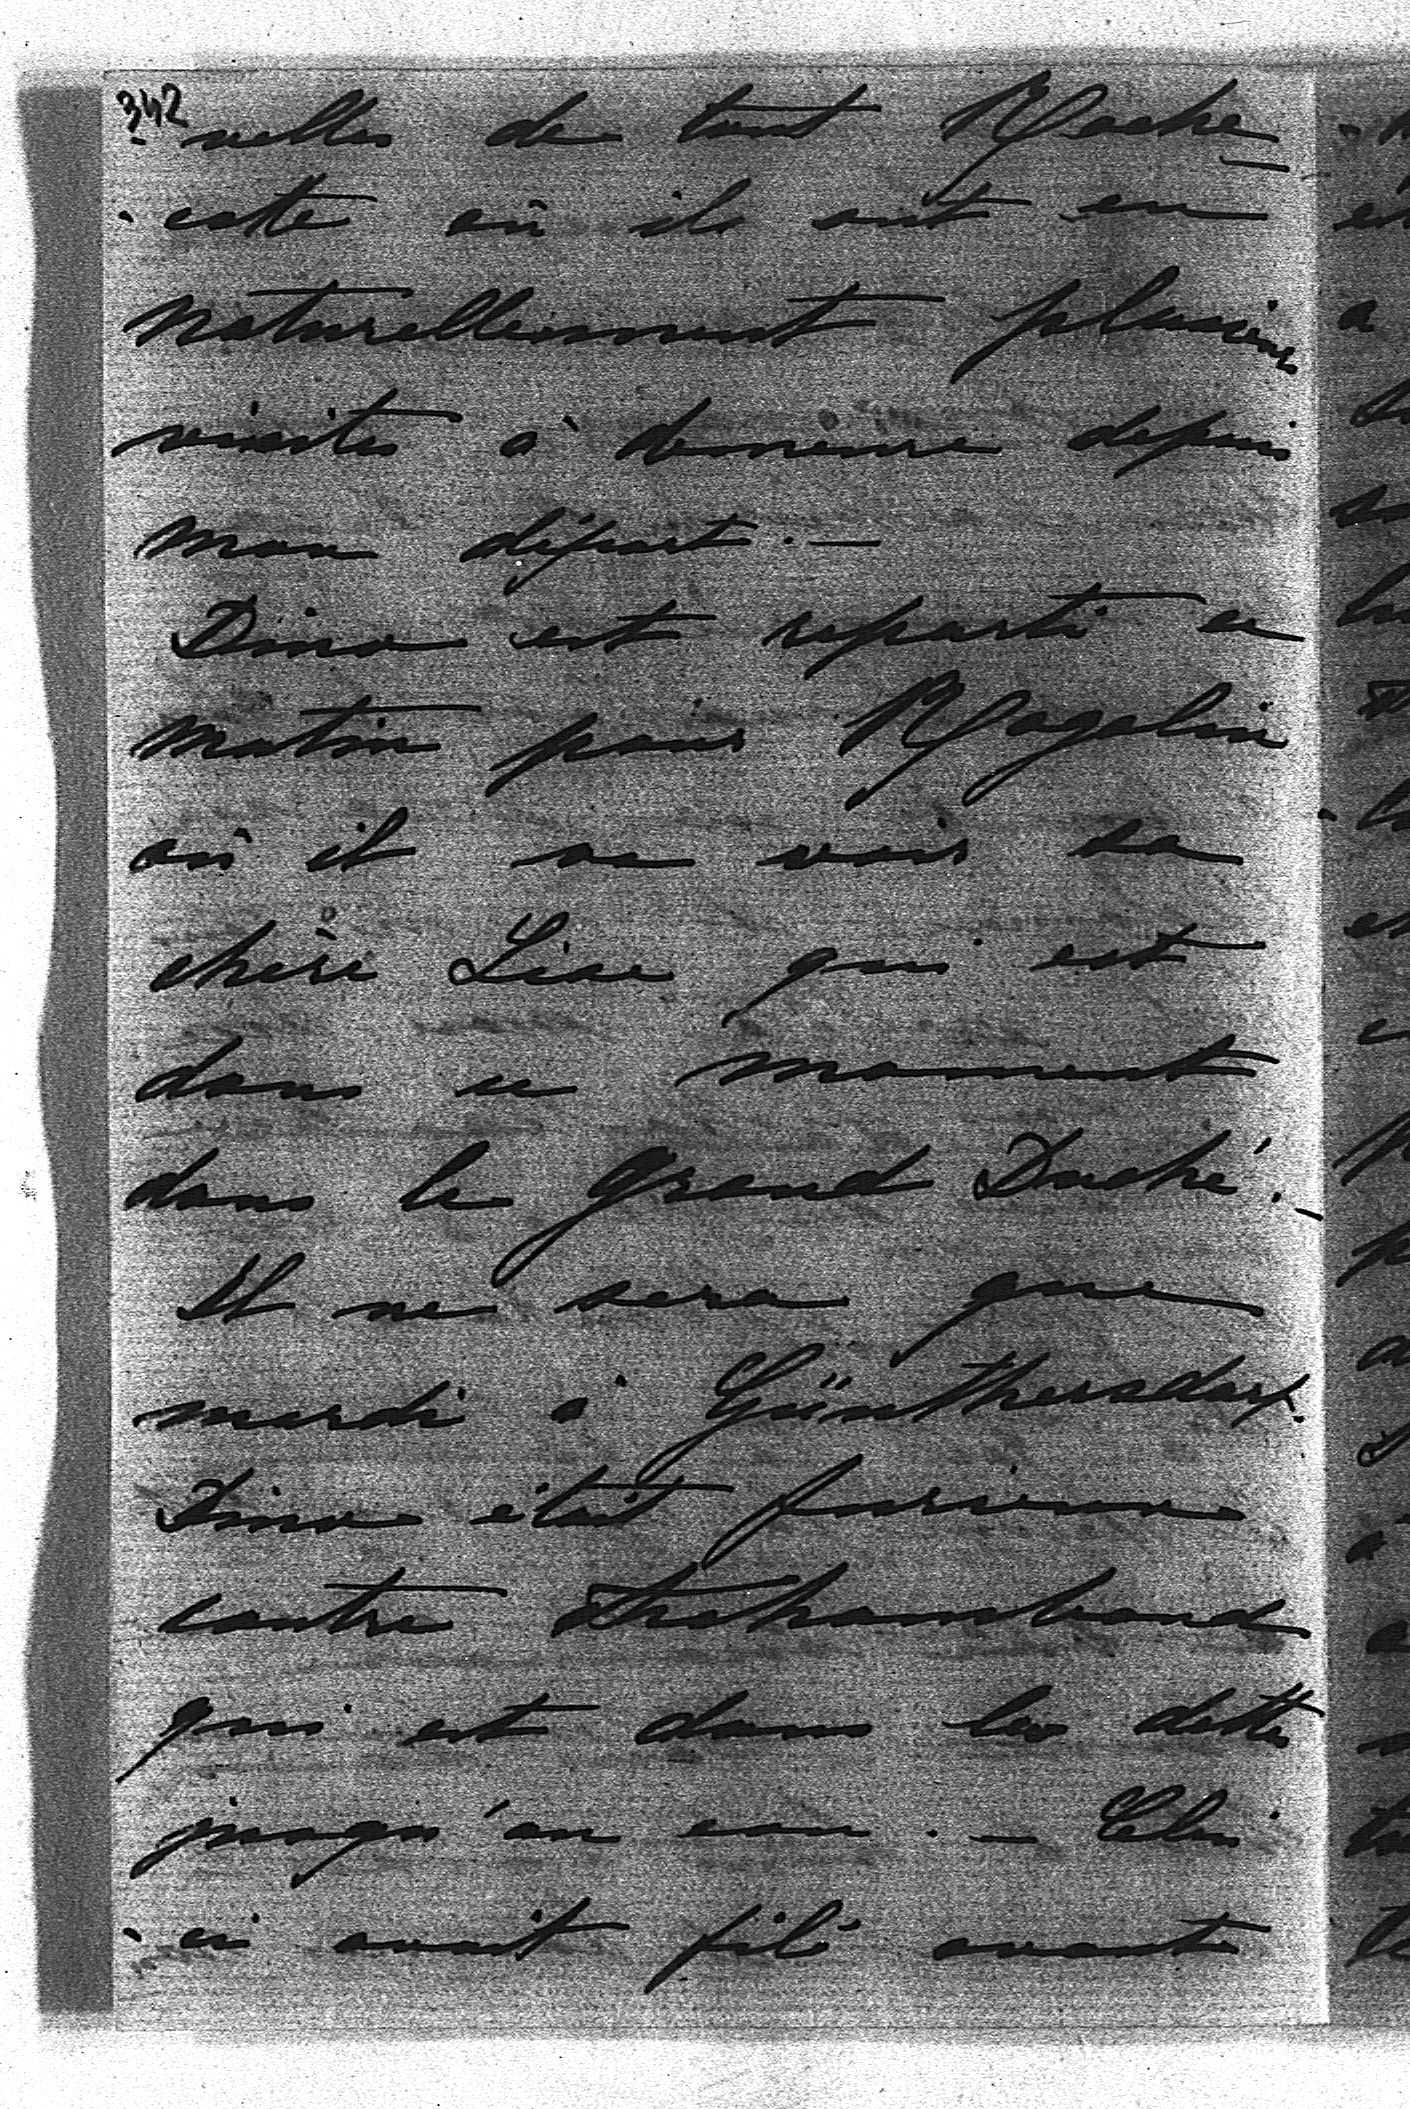 342
- velles de tout Roche
- cotte où ils ont eu
naturellement plusieurs
visites à demeure depuis
mon départ. —
Dino est reparti ce
matin pour Rogalin
où il va voir sa
chère Lise qui est
dans ce moment
dans le Grand Duché. -
Il ne sera que
mardi à Günthersdorf.
Dino était furieux
contre
qui est dans les dettes
jusqu'au cou. — Celui
- ci avait filé avant